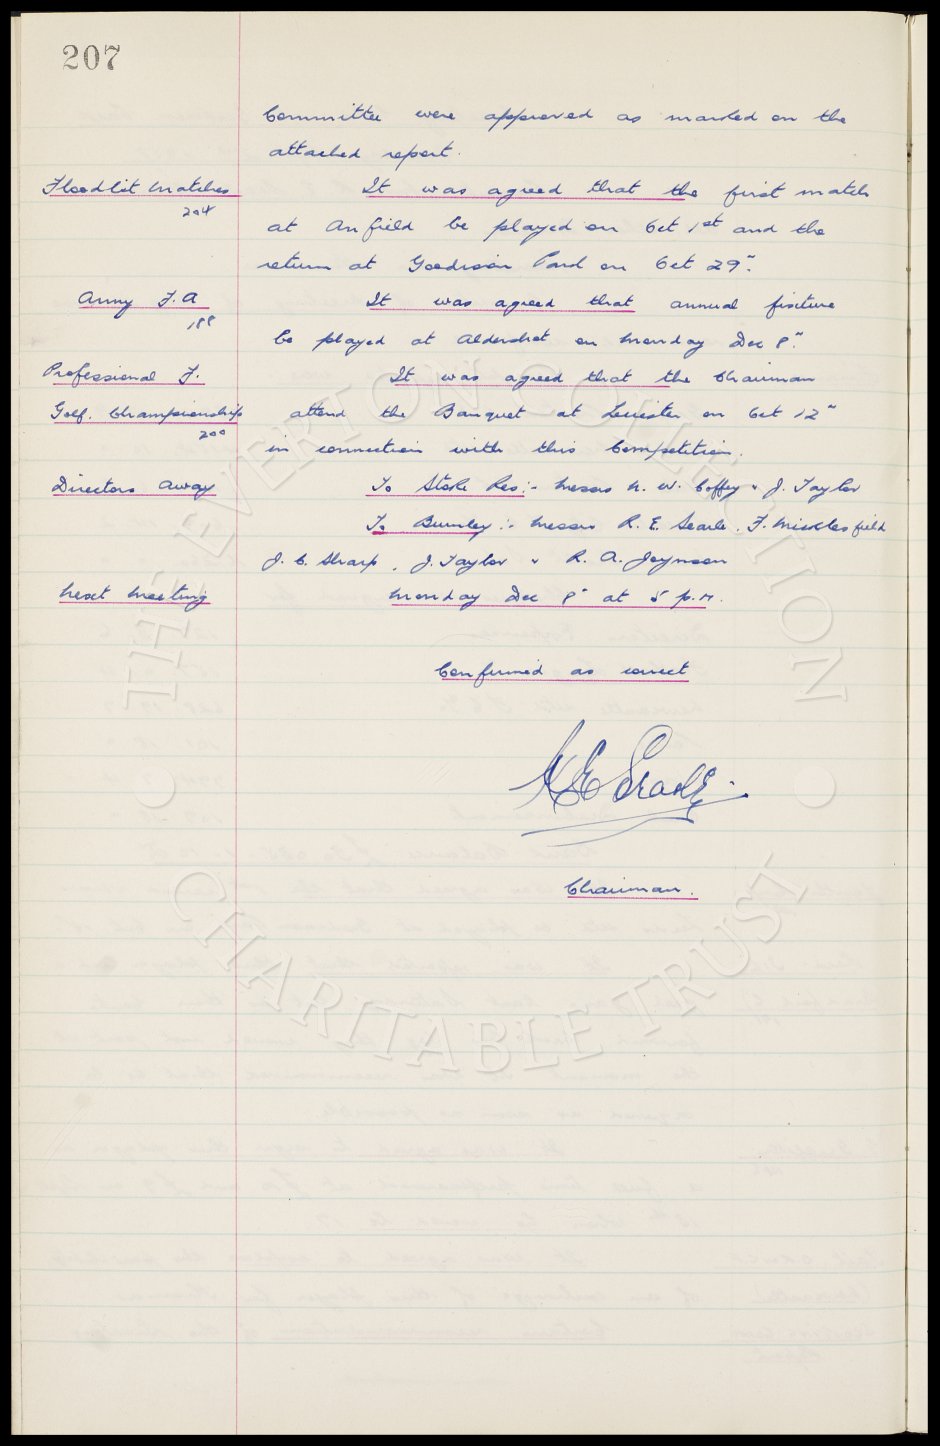 207
Committee were approved as marked on the
attached report.
Floodlit Matches It was agreed that the first match
204
at Anfield be played on Oct 1st and the
return at Goodison Park on Oct 29".
Army F.A It was agreed that annual fixture
188
be played at Aldershot on Monday Dec 8."
Professional F. It was agreed that the Chairman
Golf. Championship attend the Banquet at Leicester on Oct 12"
200
in connection with this Competition.
Directors away To Stoke Res:- Messrs N. W. Coffey " J. Taylor
To Burnley:- Messrs R. E. Searle. F. Micklesfield
J. C. Sharp, J. Taylor " R. A. Joynson
Next Meeting Monday Dec 8" at 5 p.m.
Confirmed as correct
Chairman.
THE EVERTON COLLECTION
CHARITABLE TRUST